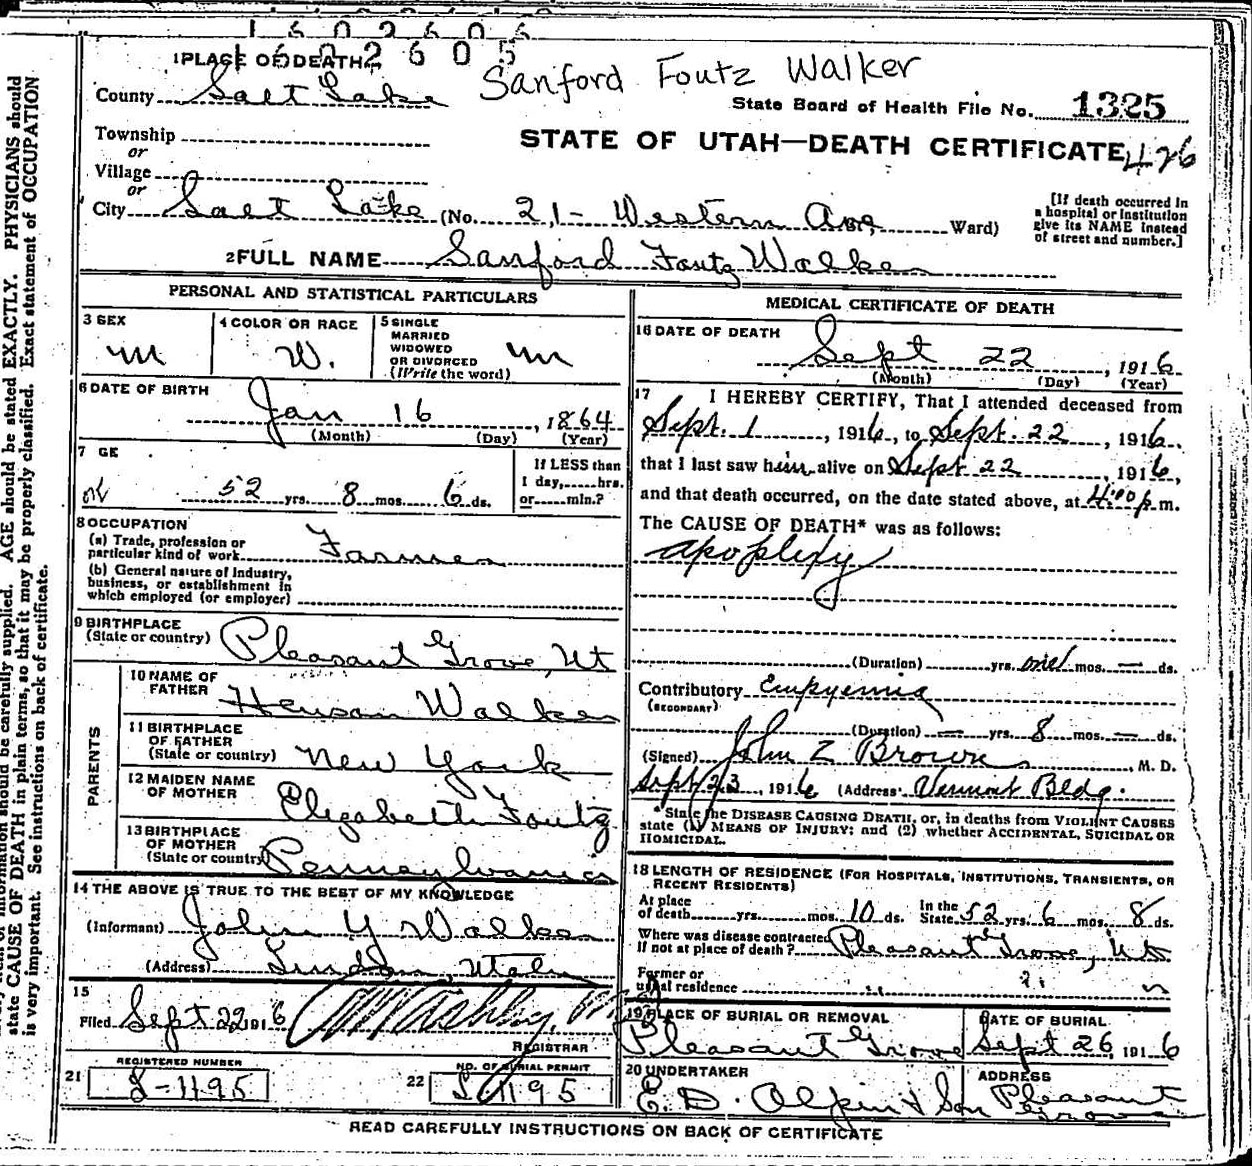 1602606
1602605
1 PLACE OF DEATH
Sanford Foutz Walker
County Salt Lake
State Board of Health File No. 1325
Township
or
STATE OF UTAH—DEATH CERTIFICATE 426
Village
or
City Salt Lake (No. 21- Western Ave, Ward)
[If death occurred in
a hospital or institution
give its NAME instead
of street and number.]
2 FULL NAME Sanford Foutz Walker
PERSONAL AND STATISTICAL PARTICULARS
3 SEX
m
4 COLOR OR RACE
W.
5 SINGLE
MARRIED
WIDOWED
OR DIVORCED
(Write the word)
m
6 DATE OF BIRTH
Jan 16, 1864
(Month) (Day) (Year)
7 GE
52 yrs. 8 mos. 6 ds.
If LESS than
1 day, hrs.
or min.?
8 OCCUPATION
(a) Trade, profession or
particular kind of work Farmer
(b) General nature of Industry,
business, or establishment in
which employed (or employer)
9 BIRTHPLACE
(State or country) Pleasant Grove, Ut
PARENTS
10 NAME OF
FATHER Henson Walker
11 BIRTHPLACE
OF FATHER
(State or country) New York
12 MAIDEN NAME
OF MOTHER Elizabeth Foutz
13 BIRTHPLACE
OF MOTHER
(State or country) Pennsylvania
14 THE ABOVE IS TRUE TO THE BEST OF MY KNOWLEDGE
(Informant) John Y Walker
(Address) Lindon, Utah
15
Filed Sept 22 1916
Ashby, M.D.
REGISTRAR
REGISTERED NUMBER
21 S-1195
NO. OF BURIAL PERMIT
22 S 1195
MEDICAL CERTIFICATE OF DEATH
16 DATE OF DEATH
Sept 22, 1916
(Month) (Day) (Year)
17 I HEREBY CERTIFY, That I attended deceased from
Sept. 1, 1916, to Sept. 22, 1916,
that I last saw him alive on Sept 22, 1916,
and that death occurred, on the date stated above, at 4:00 p.m.
The CAUSE OF DEATH* was as follows:
apoplexy
(Duration) yrs. one mos. — ds.
Contributory Empyemia
(SECONDARY)
(Duration) — yrs. 8 mos. — ds.
(Signed) John Z Brown, M. D.
Sept 23, 1916 (Address Vermont Bldg.
*State the DISEASE CAUSING DEATH, or, in deaths from VIOLENT CAUSES
state (1) MEANS OF INJURY; and (2) whether ACCIDENTAL, SUICIDAL OR
HOMICIDAL.
18 LENGTH OF RESIDENCE (FOR HOSPITALS, INSTITUTIONS, TRANSIENTS, OR
RECENT RESIDENTS)
At place
of death yrs. mos. 10 ds.
In the
State 52 yrs. 6 mos. 8 ds.
Where was disease contracted
If not at place of death? Pleasant Grove, Ut
Former or
usual residence " " "
19 PLACE OF BURIAL OR REMOVAL
Pleasant Grove
DATE OF BURIAL
Sept 26, 1916
20 UNDERTAKER
E. D. Olpin & Son
ADDRESS
Pleasant
Grove
READ CAREFULLY INSTRUCTIONS ON BACK OF CERTIFICATE
information should be carefully supplied. AGE should be stated EXACTLY. PHYSICIANS should
state CAUSE OF DEATH in plain terms, so that it may be properly classified. Exact statement of OCCUPATION
is very important. See instructions on back of certificate.